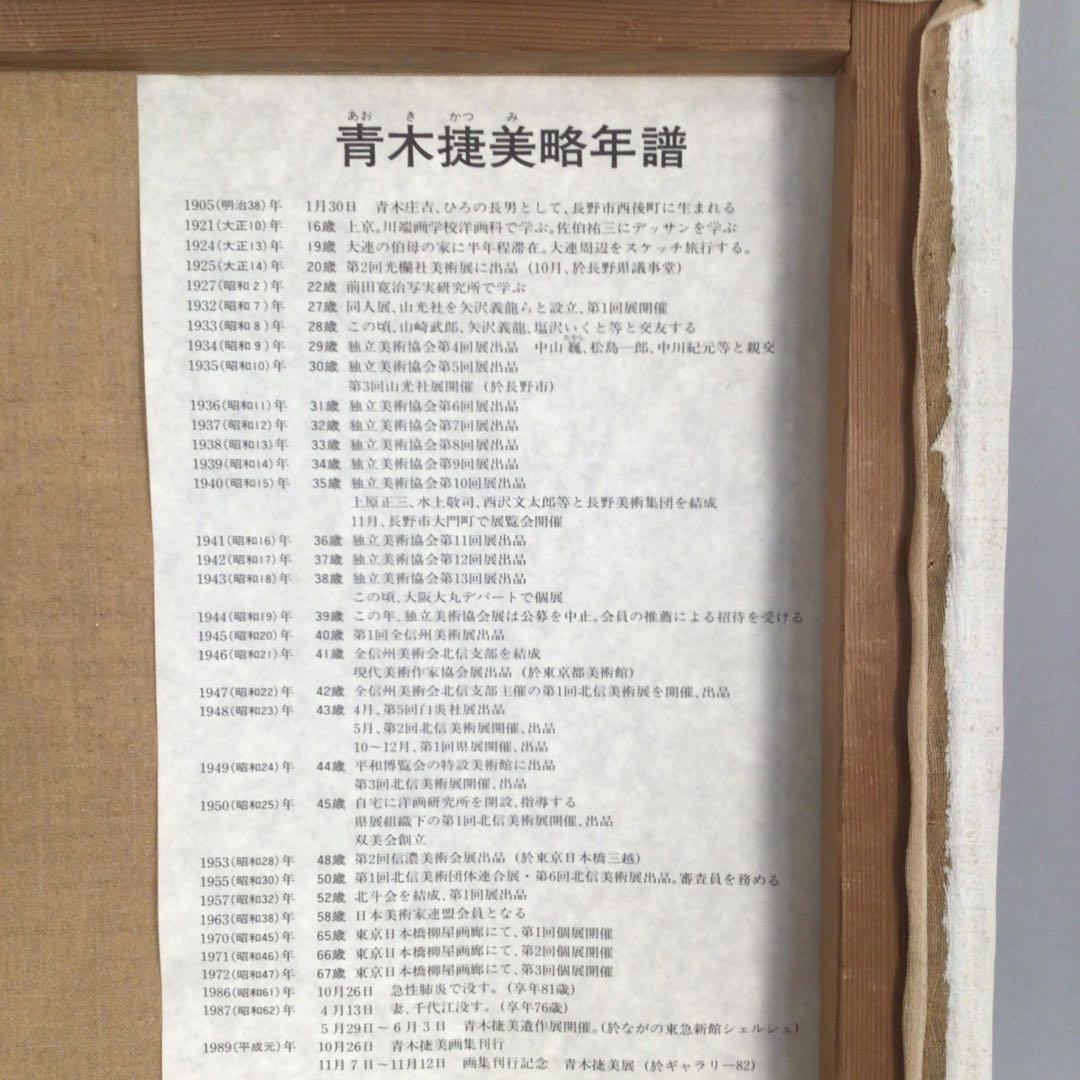 あお き かつ み
青木捷美略年譜
1905(明治38)年 1月30日 青木庄吉、ひろの長男として、長野市西後町に生まれる
1921(大正10)年 16歳 上京。川端画学校洋画科で学ぶ。佐伯祐三にデッサンを学ぶ
1924(大正13)年 19歳 大連の伯母の家に半年程滞在。大連周辺をスケッチ旅行する。
1925(大正14)年 20歳 第2回光欄社美術展に出品 (10月、於長野県議事堂)
1927(昭和2)年 22歳 前田寛治写実研究所で学ぶ
1932(昭和7)年 27歳 同人展、山光社を矢沢義龍らと設立、第1回展開催
1933(昭和8)年 28歳 この頃、山崎武郎、矢沢義龍、塩沢いくと等と交友する
たかし
1934(昭和9)年 29歳 独立美術協会第4回展出品 中山巍、松島一郎、中川紀元等と親交
1935(昭和10)年 30歳 独立美術協会第5回展出品
第3回山光社展開催 (於長野市)
1936(昭和11)年 31歳 独立美術協会第6回展出品
1937(昭和12)年 32歳 独立美術協会第7回展出品
1938(昭和13)年 33歳 独立美術協会第8回展出品
1939(昭和14)年 34歳 独立美術協会第9回展出品
1940(昭和15)年 35歳 独立美術協会第10回展出品
上原正三、水上敬司、西沢文太郎等と長野美術集団を結成
11月、長野市大門町で展覧会開催
1941(昭和16)年 36歳 独立美術協会第11回展出品
1942(昭和17)年 37歳 独立美術協会第12回展出品
1943(昭和18)年 38歳 独立美術協会第13回展出品
この頃、大阪大丸デパートで個展
1944(昭和19)年 39歳 この年、独立美術協会展は公募を中止。会員の推薦による招待を受ける
1945(昭和20)年 40歳 第1回全信州美術展出品
1946(昭和21)年 41歳 全信州美術会北信支部を結成
現代美術作家協会展出品 (於東京都美術館)
1947(昭和22)年 42歳 全信州美術会北信支部主催の第1回北信美術展を開催、出品
1948(昭和23)年 43歳 4月、第5回白炎社展出品
5月、第2回北信美術展開催、出品
10〜12月、第1回県展開催、出品
1949(昭和24)年 44歳 平和博覧会の特設美術館に出品
第3回北信美術展開催、出品
1950(昭和25)年 45歳 自宅に洋画研究所を開設、指導する
県展組織下の第1回北信美術展開催、出品
双美会創立
1953(昭和28)年 48歳 第2回信濃美術会展出品 (於東京日本橋三越)
1955(昭和30)年 50歳 第1回北信美術団体連合展・第6回北信美術展出品。審査員を務める
1957(昭和32)年 52歳 北斗会を結成、第1回展出品
1963(昭和38)年 58歳 日本美術家連盟会員となる
1970(昭和45)年 65歳 東京日本橋柳屋画廊にて、第1回個展開催
1971(昭和46)年 66歳 東京日本橋柳屋画廊にて、第2回個展開催
1972(昭和47)年 67歳 東京日本橋柳屋画廊にて、第3回個展開催
1986(昭和61)年 10月26日 急性肺炎で没す。(享年81歳)
1987(昭和62)年 4月13日 妻、千代江没す。(享年76歳)
5月29日〜6月3日 青木捷美遺作展開催。(於ながの東急新館シェルシェ)
1989(平成元)年 10月26日 青木捷美画集刊行
11月7日〜11月12日 画集刊行記念 青木捷美展 (於ギャラリー82)